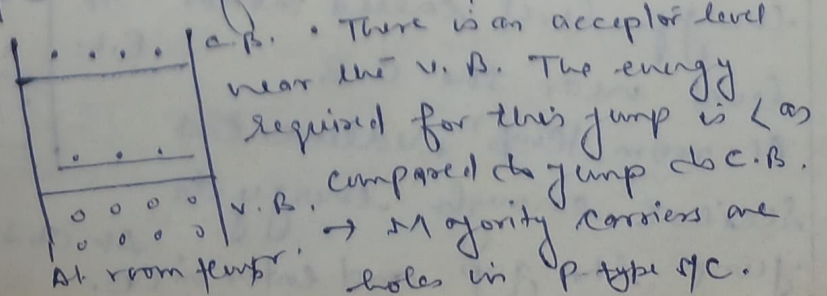 C.B. • There is an acceptor level
near the V. B. The energy
required for this jump is < as
compared to jump to C.B.
V.B. → Majority carriers are
At room tempr. holes in p-type s/c.